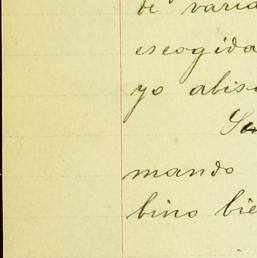 de varia
escogida
yo alis
mando
bino bie